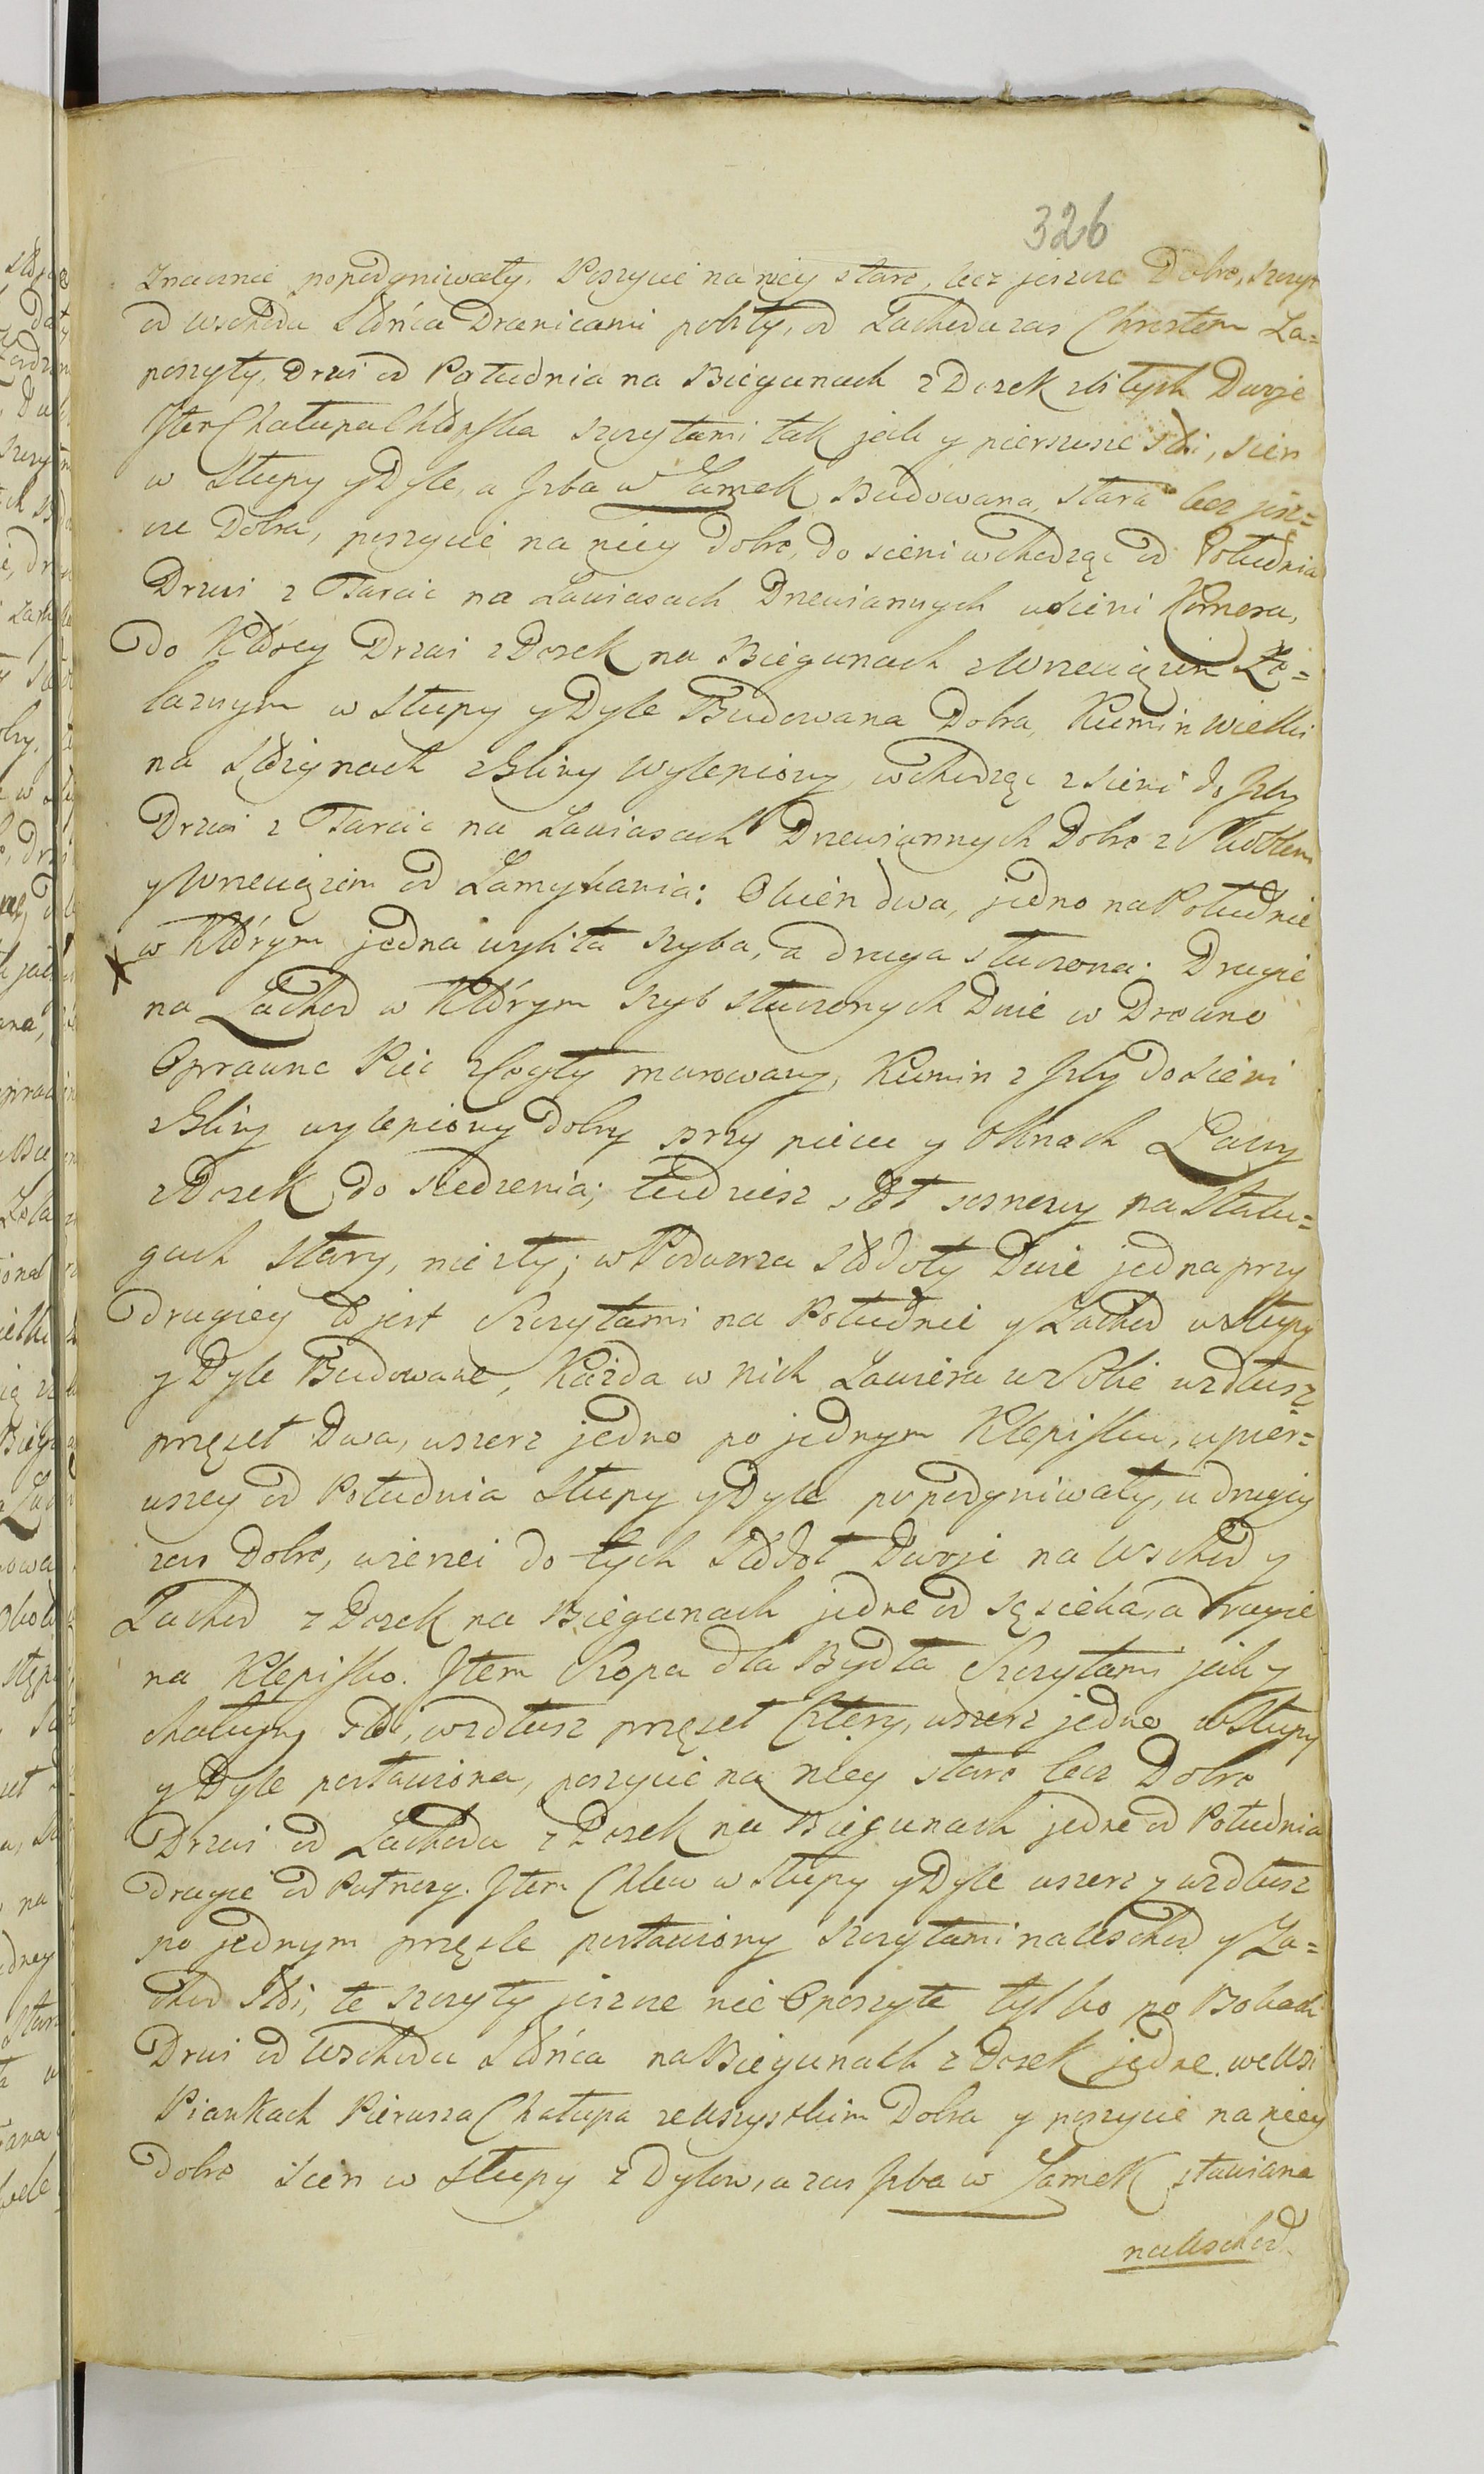 326
znacznie popodgniwały. Poszycie na niey stare, lecz jeszcze Dobre, szczyt
od wschodu Słońca Dranicami pobity, od Zachodu zas Chrostem Za=
poszyty, Drzwi od Południa na Biegunach z Dosek zbitych Dwoje
Item Chałupa Chłopska szczytami tak jak y pierwsze stoi, sien
w Słupy y Dyle, a Jzba w Zamek Budowana, stara lecz jesz=
cze Dobra, poszycie na niey dobre, do sieni wchodząc od Południa
Drzwi z Tarcic na Zawiasach Drewiannych w sieni Komora,
do Którey Drzwi z Dosek na Biegunach z Wrzeciązem Że=
laznym w Słupy y Dyle Budowana Dobra, Kumin wielki
na Stoiynach z Gliny wylepiony, wchodząc z sieni do Jzby
Drzwi z Tarcic na Zawiasach Drewiannych Dobre z Skoblem
y Wrzeciązem od Zamykania: Okien dwa, jedno na Południe
w Którym jedna wybita szyba, a druga stuczona. Drugie
na Zachod w Którym szyb stuczonych Dwie w Drewno
Oprawne Piec z Cegły murowany, Kumin z Jzby do sieni
z Gliny wylepiony Dobry przy piecu y Oknach Ławy
z Dosek do siedzenia; tudziesz stoł sosnowy na Stalu=
gach stary, nie zły; w Podworzu Stodoły Dwie jedna przy
drugiey to jest Szczytami na Południe y Zachod w Słupy
y Dyle Budowane, Każda w nich Zawiera w Sobie wzdłusz
przęseł Dwa, wszerz jedno po jednym Klepisku, w pier=
wszey od Południa Słupy y Dyle popodgniwały, u drugiey
zas Dobre, wierzei do tych Stodoł Dwoje na Wschod y
Zachod z Dosek na Biegunach jedne od Sąsieka, a drugie
na Klepisko. Jtem Szopa dla Bydła Szczytami jak y
chałupy stoi, wzdłusz przęseł Cztery, wszerz jedno w Słupy
y Dyle postawiona, poszycie na niey stare lecz Dobre
Drzwi od Zachodu z Dosek na Biegunach jedne od Południa
drugie od Pułnocy. Jtem Chlew w Słupy y Dyle wszerz y wzdłusz
po jednym przęśle postawiony szczytami na Wschod y Za=
chod stoi, te szczyty jeszcze nie Oposzyte tylko po Bokach
Drzwi od Wschodu Słońca na Biegunach z Dosek jedne. we Wsi
Piankach Pierwsza Chałupa ze Wszystkim Dobra y poszycie na niey
dobre Sien w Słupy z Dylow, a zas Jzba w Zamek stawiana
na Wschod